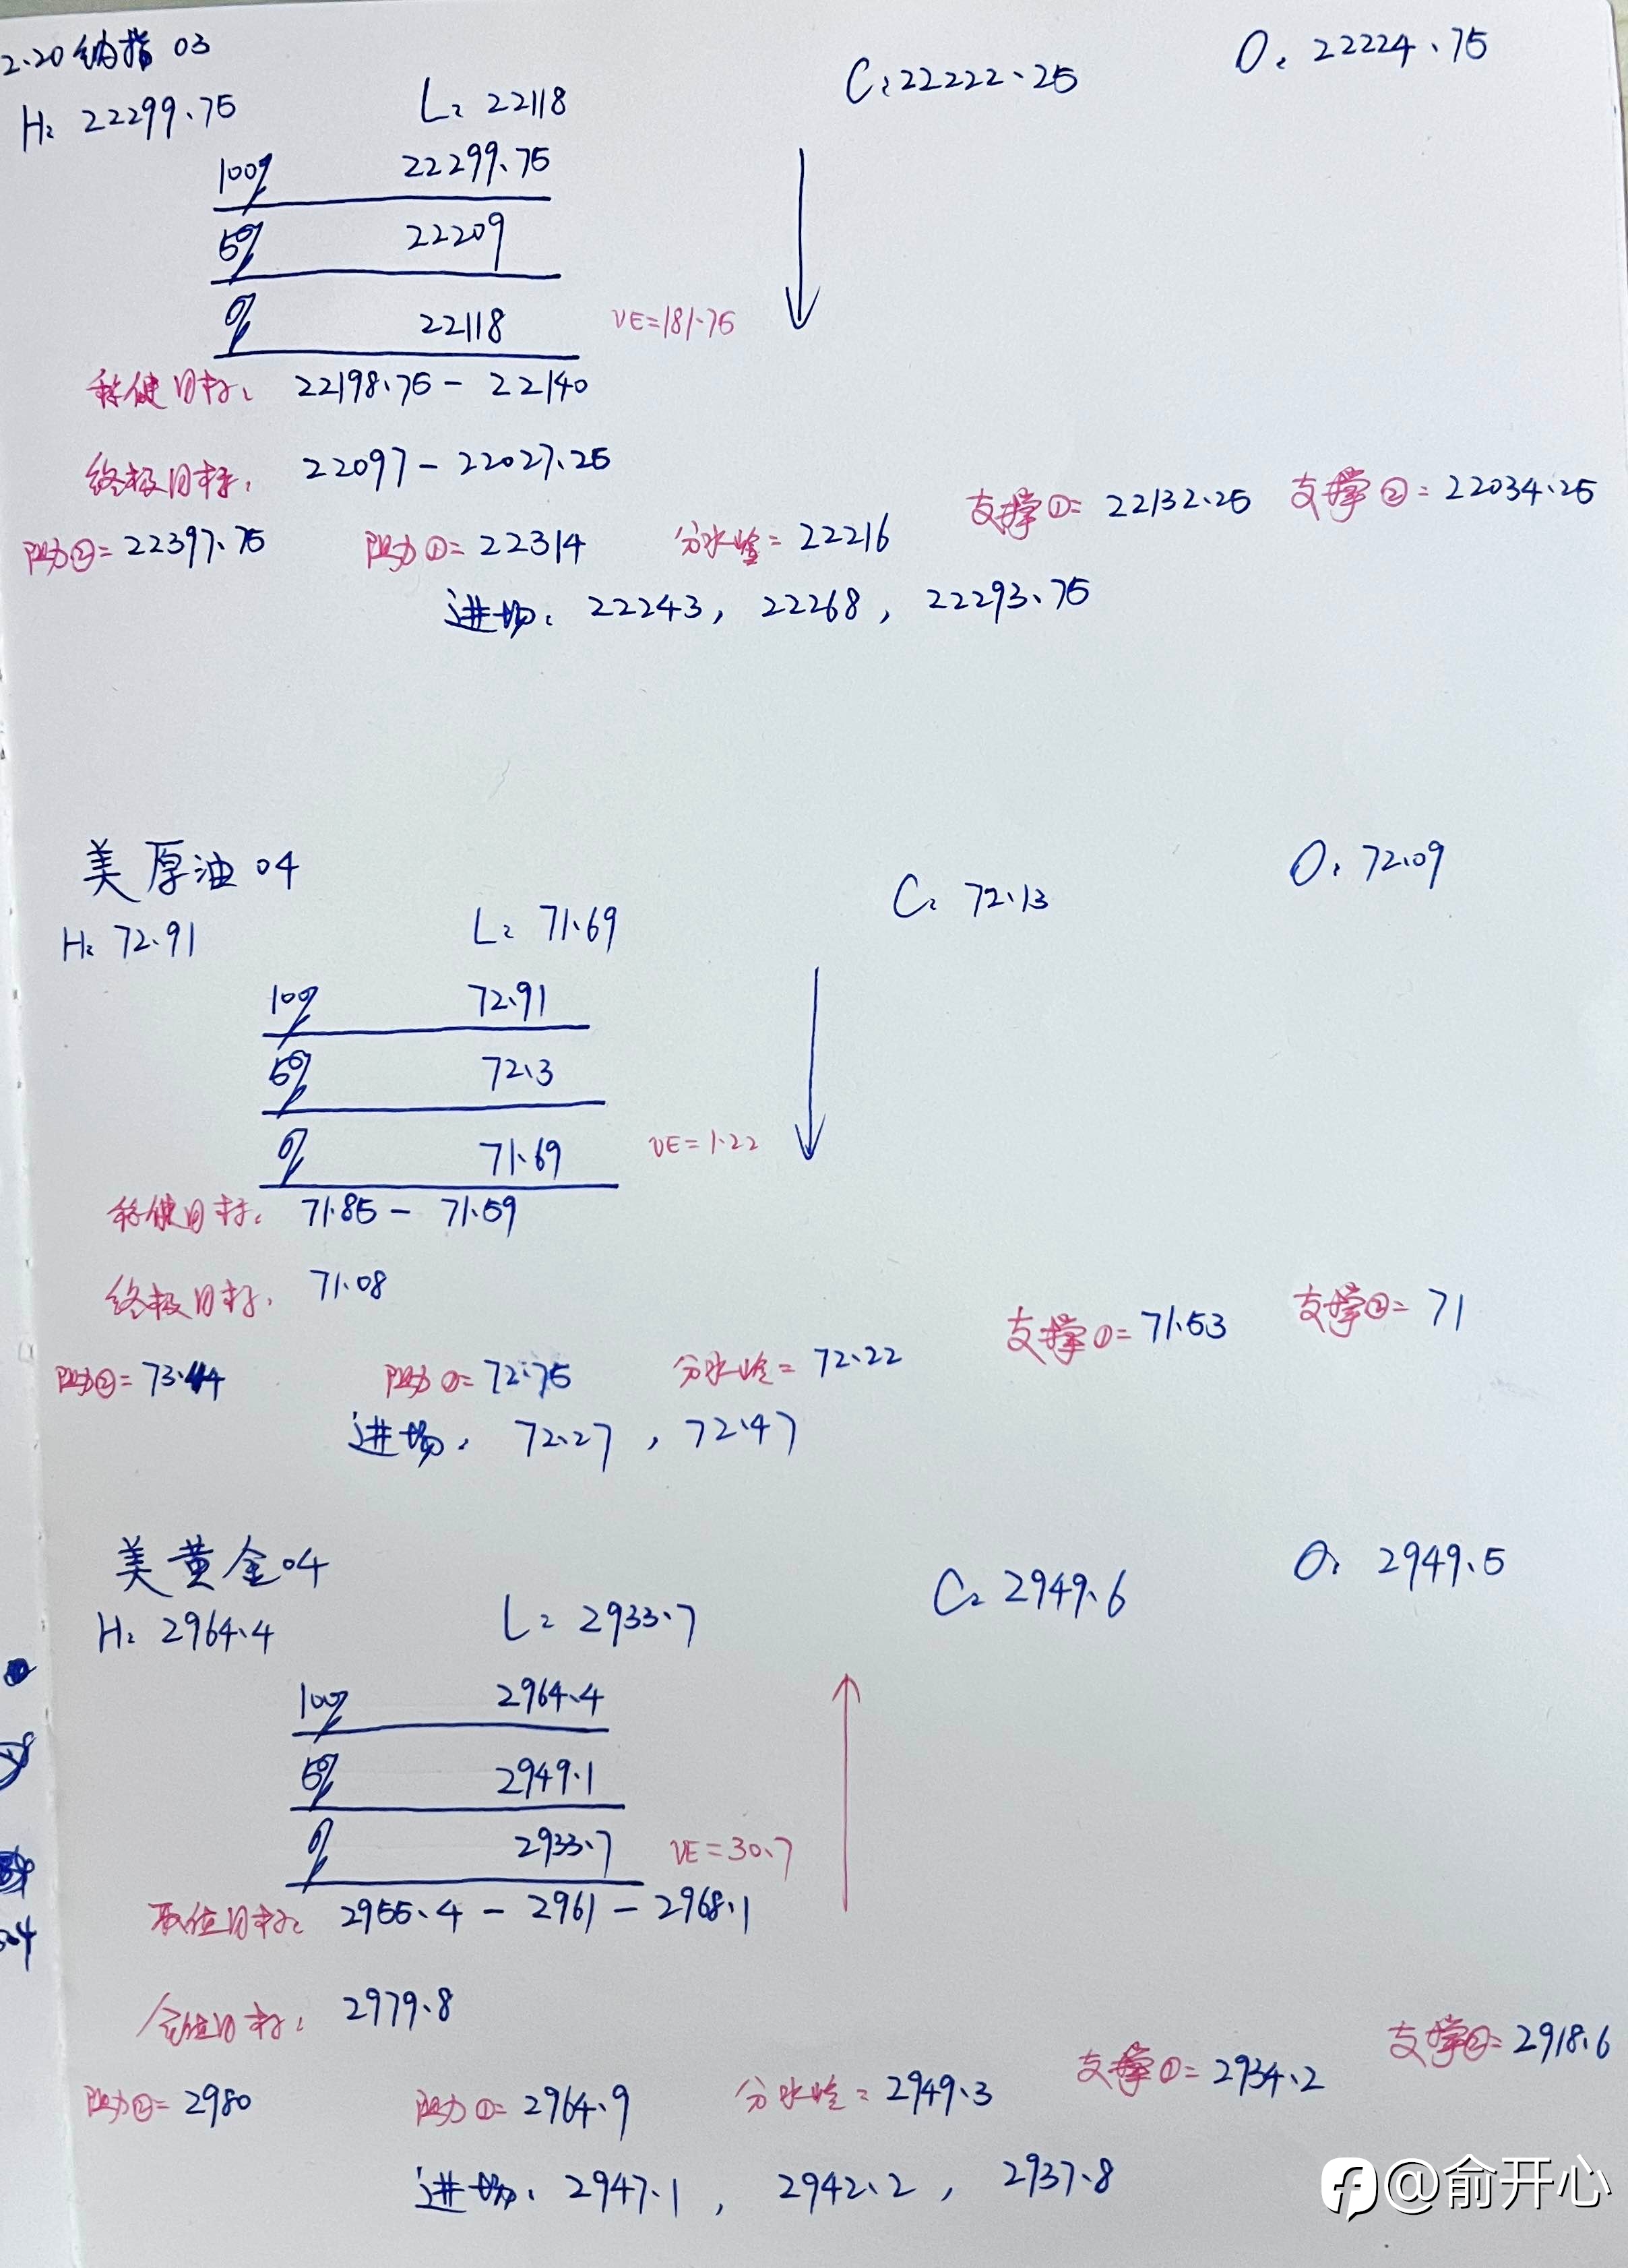 2.20纳指03
H: 22299.75 L: 22118 C: 22222.25 O: 22224.75
100% 22299.75
50% 22209
0% 22118 VE=181.75
稳健目标: 22198.75 - 22140
终极目标: 22097 - 22027.25
阻力②=22397.75 阻力①=22314 分水岭=22216 支撑①=22132.25 支撑②=22034.25
进场: 22243, 22268, 22293.75
美原油04
H: 72.91 L: 71.69 C: 72.13 O: 72.09
100% 72.91
50% 72.3
0% 71.69 VE=1.22
稳健目标: 71.85 - 71.59
终极目标: 71.08
阻力②=73.44 阻力①=72.75 分水岭=72.22 支撑①=71.53 支撑②=71
进场: 72.27, 72.47
美黄金04
H: 2964.4 L: 2933.7 C: 2949.6 O: 2949.5
100% 2964.4
50% 2949.1
0% 2933.7 VE=30.7
位目标: 2955.4 - 2961 - 2968.1
位目标: 2979.8
阻力②=2980 阻力①=2964.9 分水岭=2949.3 支撑①=2934.2 支撑②=2918.6
进场: 2947.1, 2942.2, 2937.8
@俞开心